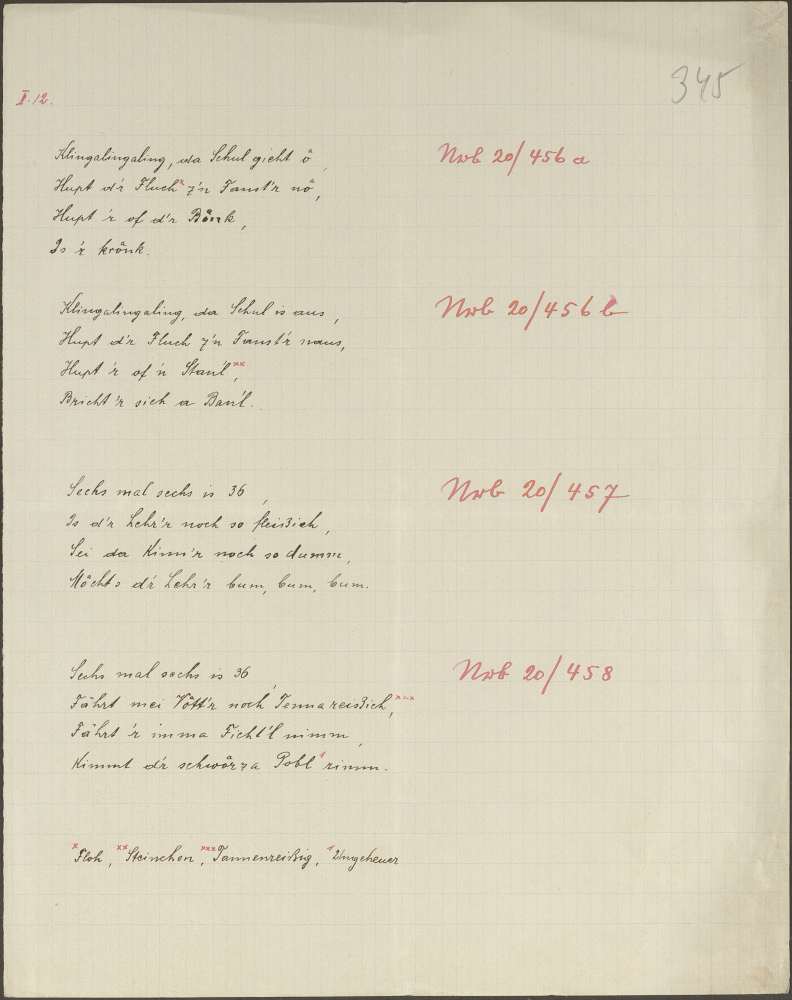 345
I.12.
Klingalingaling, da Schul gieht ô, Nrb 20/456 a
Hupt d'r Fluch x z'n Fanst'r nô,
Hupt 'r of d'r Bånk,
Is 'r krånk.
Klingalingaling, da Schul is aus, Nrb 20/456 b
Hupt d'r Fluch z'n Fanst'r naus,
Hupt 'r of 'n Stan'l xx,
Bricht 'r sich a Ban'l.
Sechs mal sechs is 36, Nrb 20/457
Is d'r Lehr'r noch so fleißich,
Sei da Kinn'r noch so dumm,
Måchts d'r Lehr'r bum, bum, bum.
Sechs mal sechs is 36, Nrb 20/458
Fährt mei Vått'r noch Tennareißich xxx,
Fährt 'r imma Ficht'l nimm,
Kimmt d'r schwårza Pobl 1 rimm.
x Floh, xx Steinchen, xxx Tannenreißig, 1 Ungeheuer